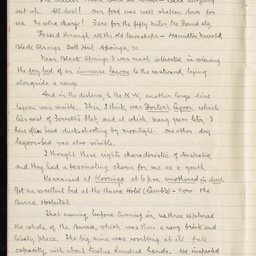 out oh. All dust! Our food was well shaken down for
us. No extra charge! Fare for the fifty miles
Passed through all the old townships — Hamilton,
Black Springs, Dust Hut, Springs, &c.
Near Black Springs I was much interested in viewing
the dry bed of an immense lagoon to the eastward, lying
alongside a range.
And in the distance, to the N.W., another large dry
lagoon was visible. This, I think, was Porter's Lagoon which
lies east of Farrell's Flat, and at which, many years later, I
have often been duckshooting by moonlight. One other dry
lagoon-bed was also visible.
I thought these sights characteristic of Australia,
and they had a fascinating charm for me as a youth.
We arrived at Kooringa at 6 p.m. smothered in dust.
Got an excellent bed at the Burra Hotel (Lamb's) — now the
Burra Hospital.
That evening, before turning in, we three explored
the whole of the Burra, which was then a very brisk and
lively place. The big mine was working at its full
capacity, with about twelve hundred hands. We inspected